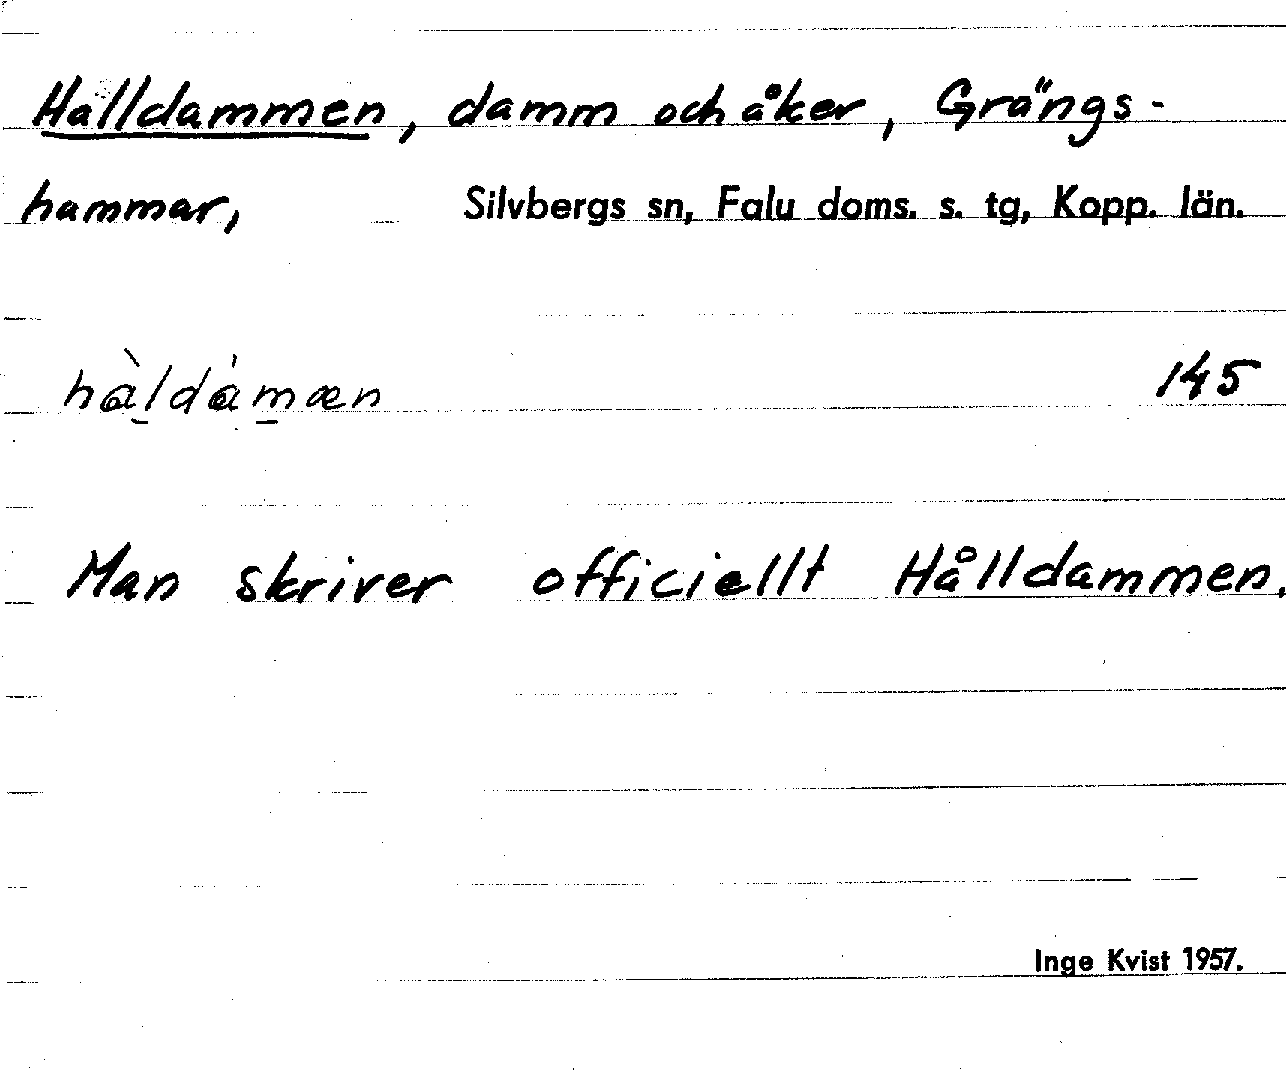 Halldammen, damm och åker, Grängs-
hammar, Silvbergs sn, Falu doms. s. tg, Kopp. län.
145
Man skriver officiellt Hålldammen.
Inge Kvist 1957.